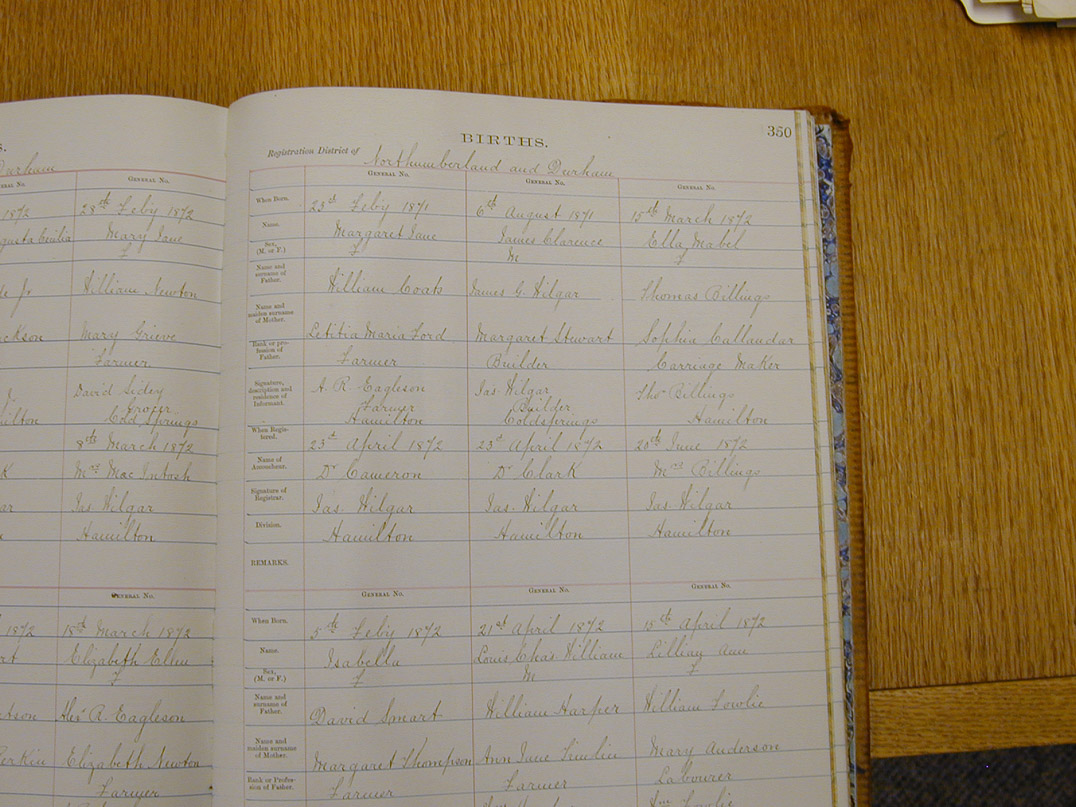 S.
Durham
GENERAL No.
1872
28th Feby 1872
Augusta Cecilia
Mary Jane
f
Jr
William Newton
Jackson
Mary Grieve
Farmer
David Sidey
Grocer
Hamilton
Cold Springs
8th March 1872
Mrs MacIntosh
Jas Wilgar
Hamilton
GENERAL No.
1872
18th March 1872
Elizabeth Ellen
f
Alex R. Eagleson
Elizabeth Newton
Farmer
350
BIRTHS.
Registration District of Northumberland and Durham
GENERAL No. GENERAL No. GENERAL No.
When Born. 23d Feby 1871 6th August 1871 15th March 1872
Name. Margaret Jane James Clarence Ella Mabel
Sex, (M. or F.) f M f
Name and surname of Father. William Coak James G. Wilgar Thomas Billings
Name and maiden surname of Mother. Letitia Maria Ford Margaret Stewart Sophia Callandar
Rank or profession of Father. Farmer Builder Carriage Maker
Signature, description and residence of Informant. A. R. Eagleson Jas. Wilgar Thos Billings
Farmer Builder
Hamilton Coldsprings Hamilton
When Registered. 23d April 1872 23d April 1872 20th June 1872
Name of Accoucheur. Dr Cameron Dr Clark Mrs Billings
Signature of Registrar. Jas. Wilgar Jas. Wilgar Jas. Wilgar
Division. Hamilton Hamilton Hamilton
REMARKS.
GENERAL No. GENERAL No. GENERAL No.
When Born. 5th Feby 1872 21st April 1872 15th April 1872
Name. Isabella Louis Chas William Lillian Ann
Sex, (M. or F.) f M f
Name and surname of Father. David Smart William Harper William Lowlie
Name and maiden surname of Mother. Margaret Thompson Ann Jane Mary Anderson
Rank or Profession of Father. Farmer Farmer Labourer